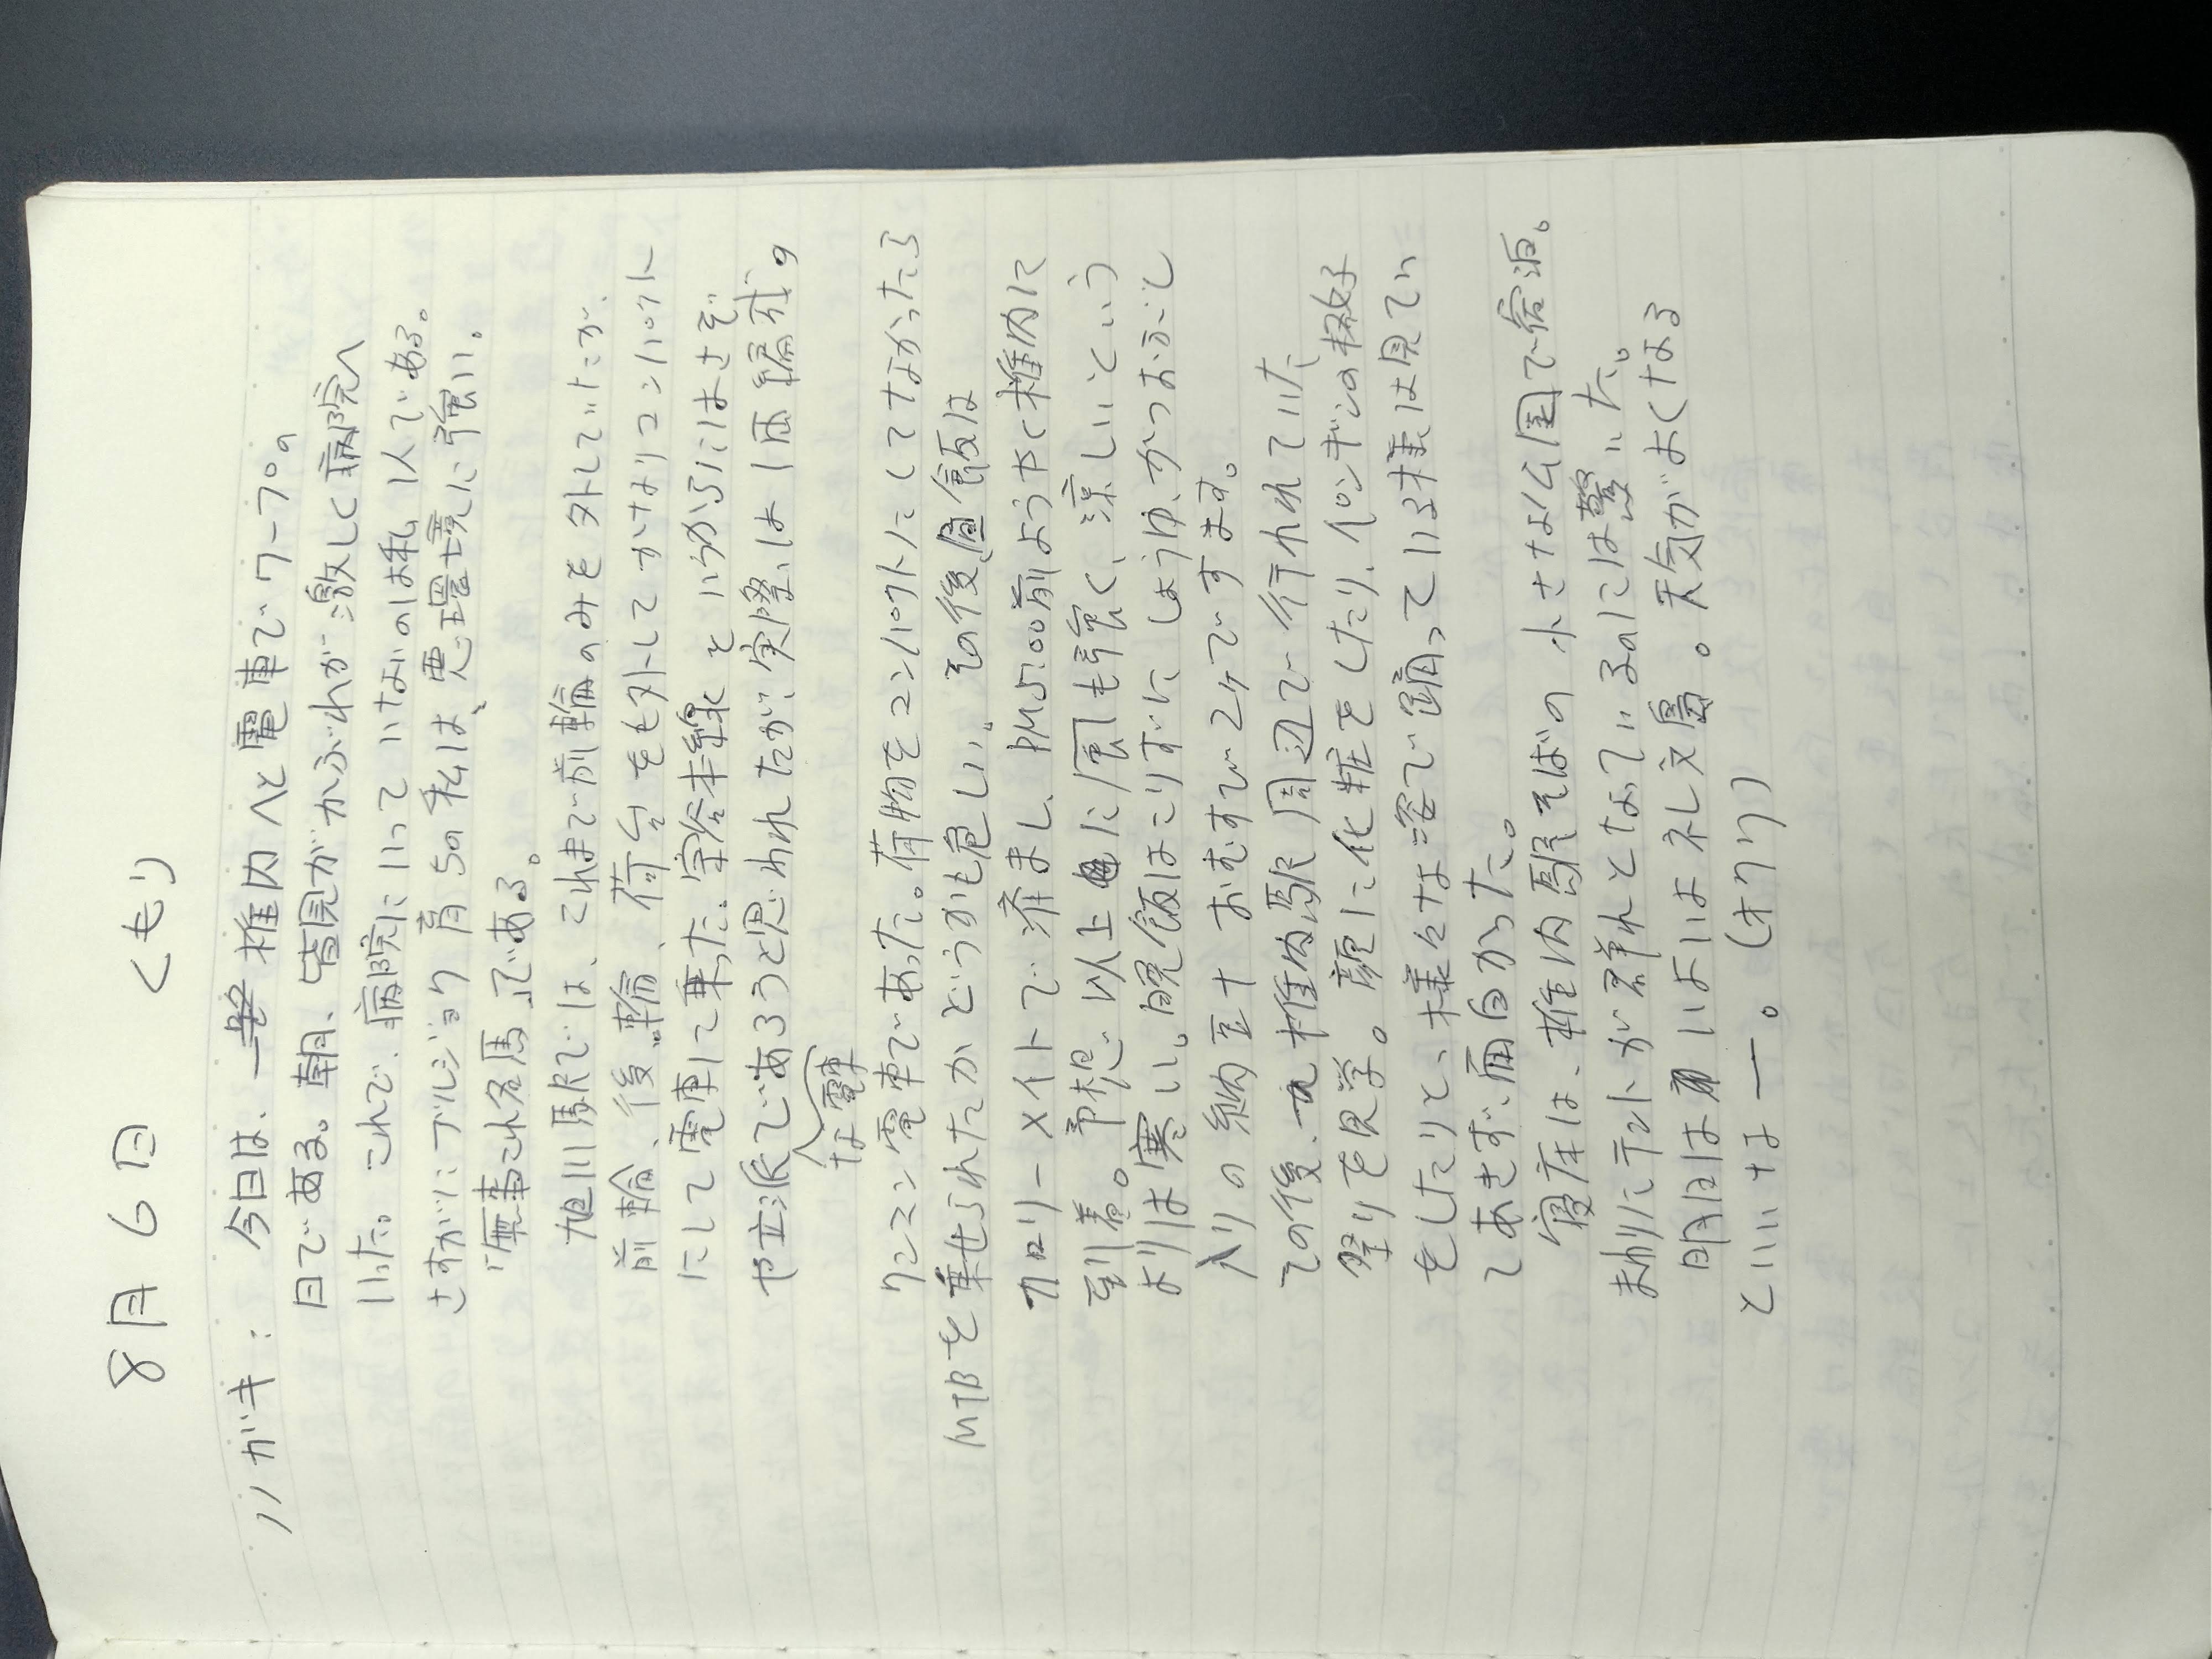 8月6日 くもり
ハガキ: 今日は、稚内へと電車でワープの
日である。朝、皆院がかぶれが激しく病院へ
いった。これで、病院にいっていないのは私1人である。
さすがにブルジョワ育ちの私は、悪環境に強い。
「無事これ名馬」である。
旭川駅では、これまで前輪のみを外していたが、
前輪、後輪、荷台をも外してかなりコンパクト
にして電車に乗った。宗谷本線というからにはさぞ
や立派な電車であろうと思われたが、実際は1両編成の
ワンマン電車であった。荷物をコンパクトにしてなかったら
MTBを乗せられたかどうかも危しい。その後、昼飯は
カロリーメイトで済まし、PM5:00前ようやく稚内に
到着。予想以上に風も強く、涼しいという
よりは寒い。晩飯はこりずにしょうゆ、かつおぶし
入りの納豆+おむすび2ケですます。
その後、稚内駅周辺で行われていた
祭りを見学。顔に化粧をしたり、ペンギンの格好
をしたりと、様々な姿で踊っている様は見てい
てあきず、面白かった。
寝床は、稚内駅そばの小さな公園で宿泊。
まわりにテントが群れとなっているのには驚いた。
明日はいよいよ礼文島。天気がよくなる
といいなー。(オワリ)